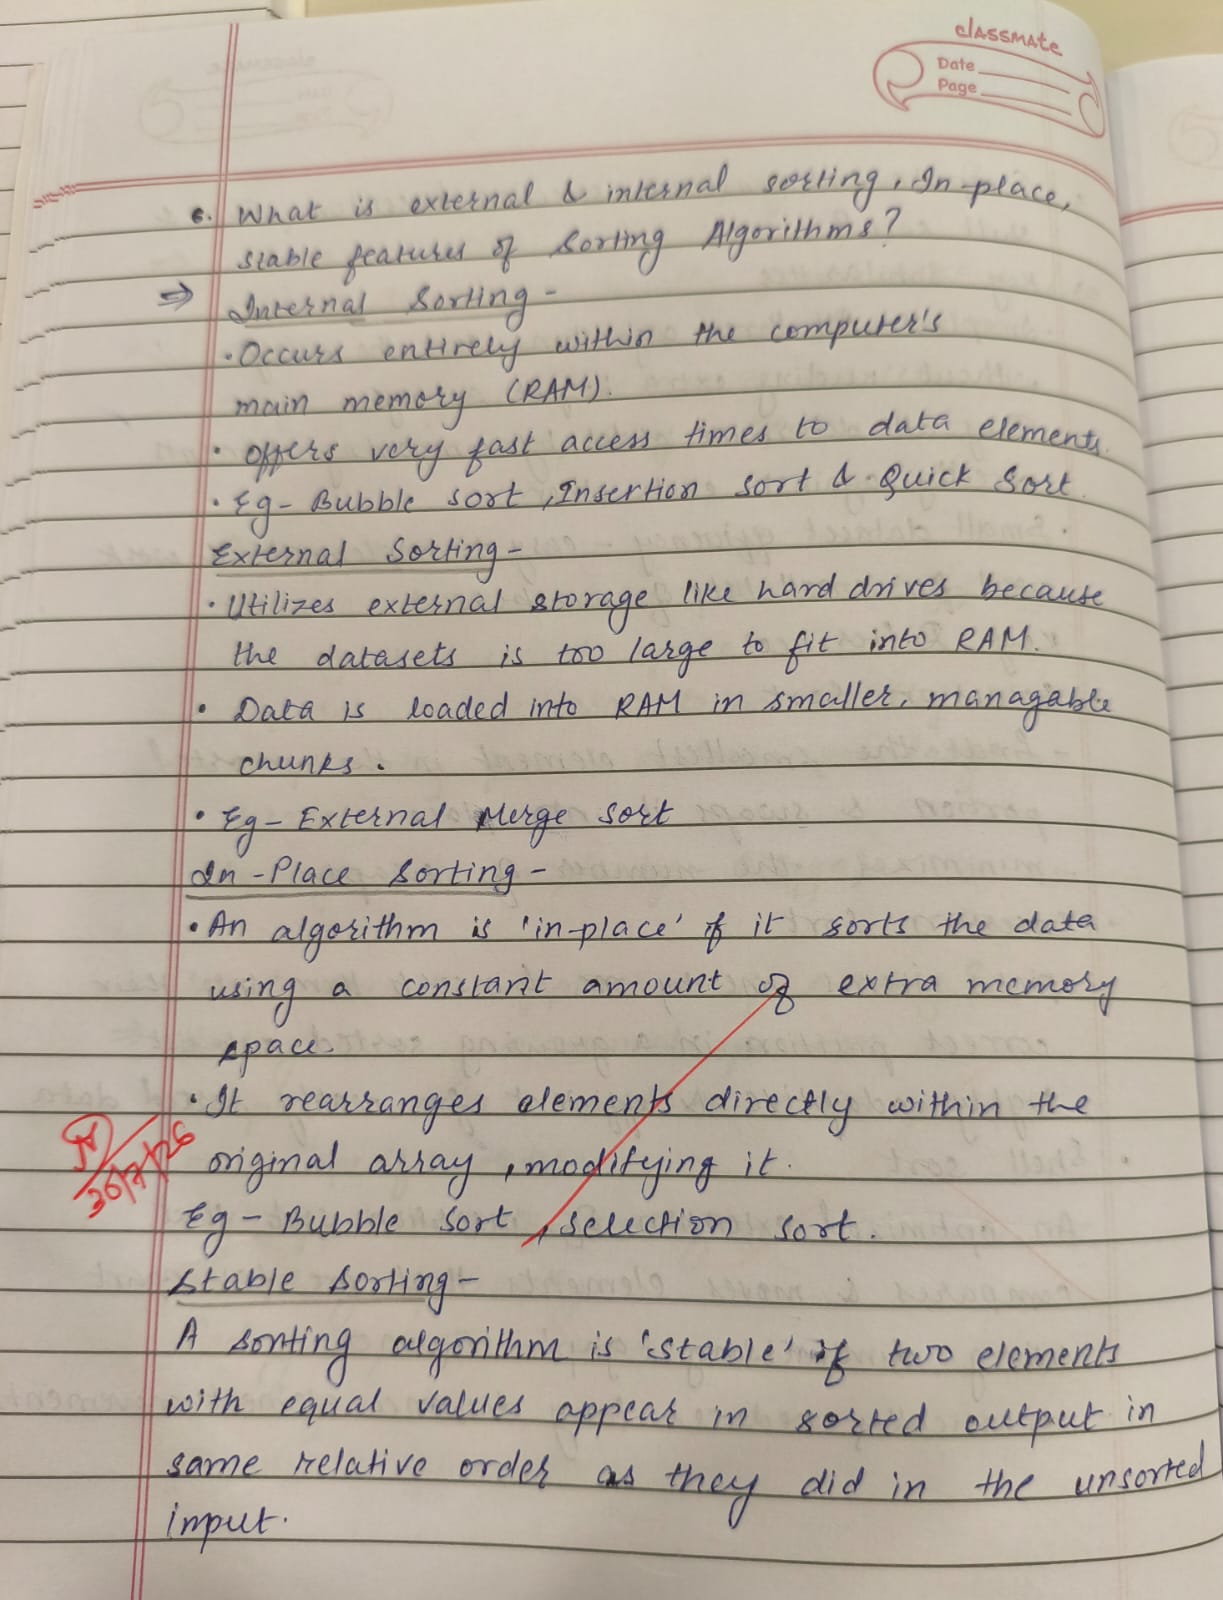 classmate
Date
Page
6. What is external & internal sorting, In-place,
stable features of Sorting Algorithms?
⇒ Internal Sorting -
• Occurs entirely within the computer's
main memory (RAM).
• offers very fast access times to data elements.
• Eg - Bubble sort, Insertion sort & Quick Sort.
External Sorting -
• Utilizes external storage like hard drives because
the datasets is too large to fit into RAM.
• Data is loaded into RAM in smaller, managable
chunks.
• Eg - External Merge sort
In-Place Sorting -
• An algorithm is 'in-place' if it sorts the data
using a constant amount of extra memory
space.
• It rearranges elements directly within the
original array, modifying it.
Eg - Bubble sort, selection sort.
Stable Sorting -
A sorting algorithm is 'stable' if two elements
with equal values appear in sorted output in
same relative order as they did in the unsorted
input.